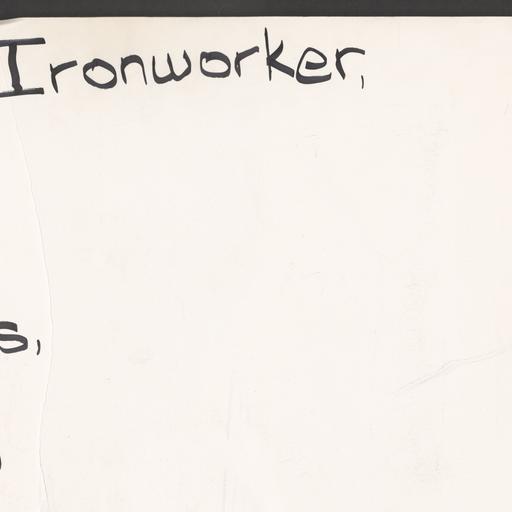 Ironworker,
s,